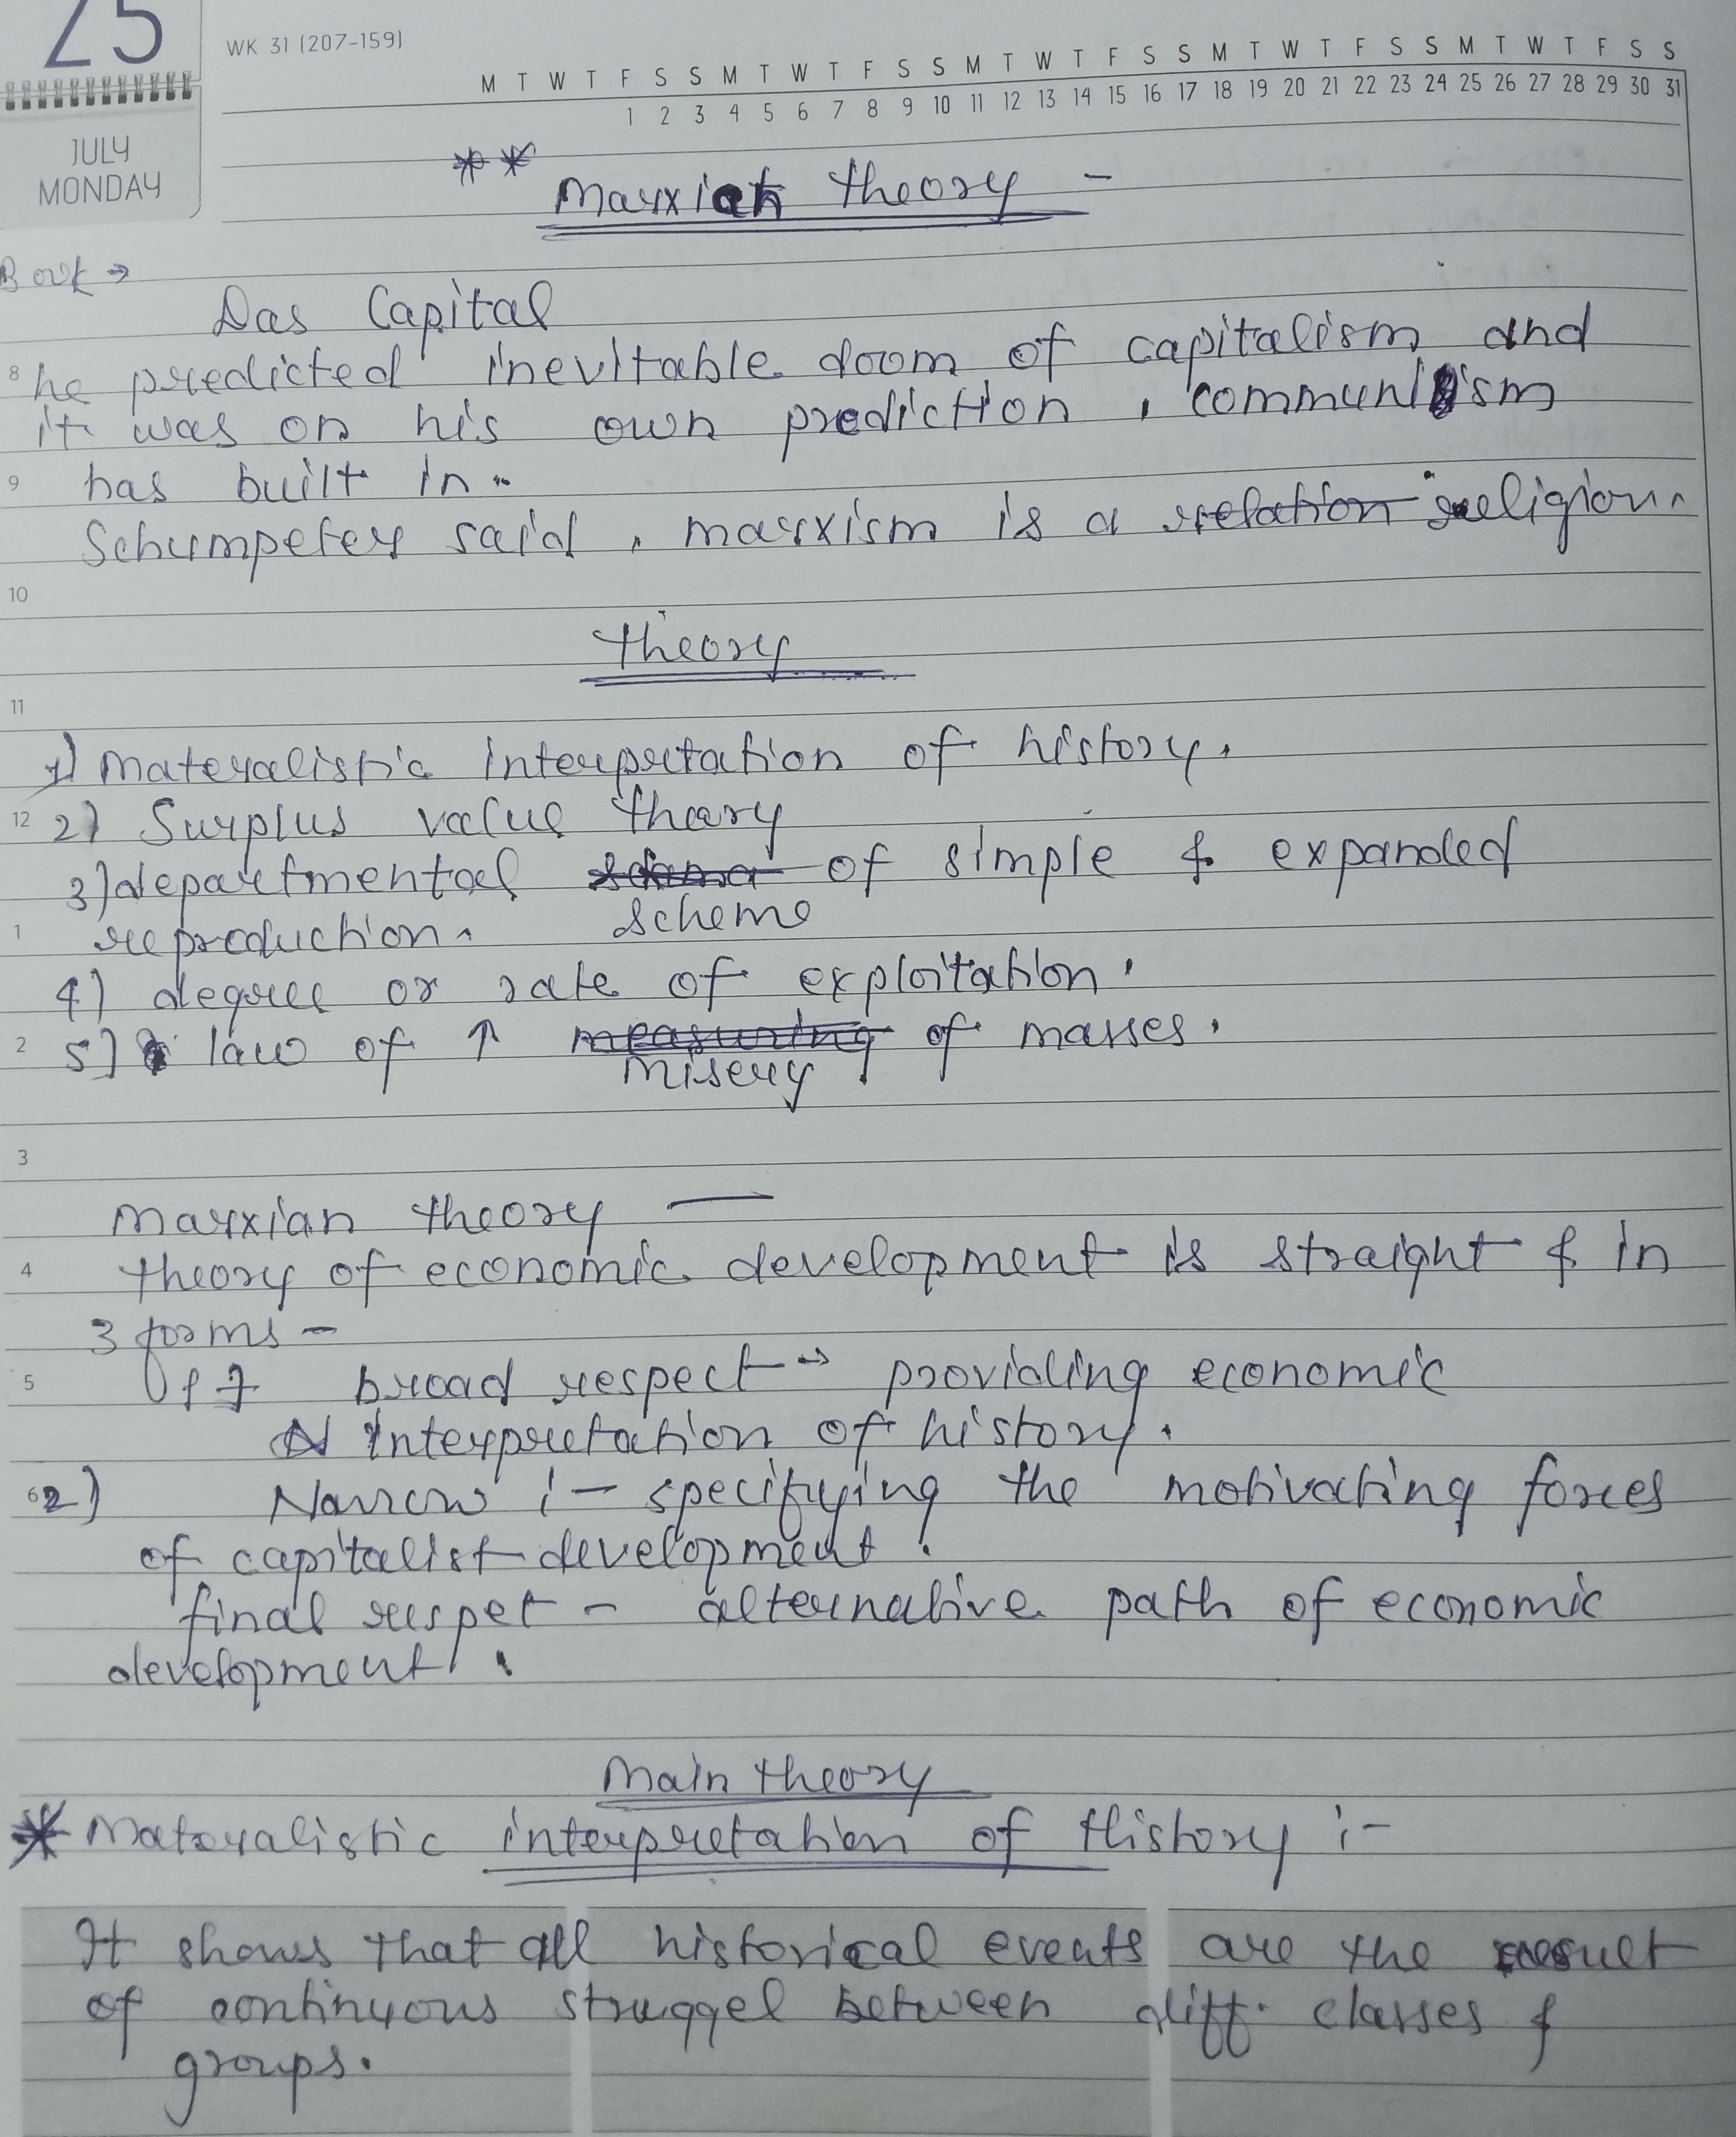 25
WK 31 (207-159)
M T W T F S S M T W T F S S M T W T F S S M T W T F S S M T W T F S S
1 2 3 4 5 6 7 8 9 10 11 12 13 14 15 16 17 18 19 20 21 22 23 24 25 26 27 28 29 30 31
JULY
MONDAY
** Marxian theory -
Book →
Das Capital
8 he predicted inevitable doom of capitalism and
it was on his own prediction, communism
9 has built in.
Schumpeter said, marxism is a relation religion.
10
theory
11
1) Materalistic interpretation of history.
12 2) Surplus value theory
3) departmental of simple & expanded
1 reproduction. scheme
4) degree or rate of exploitation.
2 5) law of ↑ measuring of masses.
misery
3
Marxian theory —
4 theory of economic development is straight & in
3 forms -
5 1) broad respect → providing economic
interpretation of history.
6 2) Narrow :- specifying the motivating forces
of capitalist development.
final respet - alternative path of economic
development.
Main theory
* Materalistic interpretation of History :-
It shows that all historical events are the result
of continyous struggel between diff. classes &
groups.